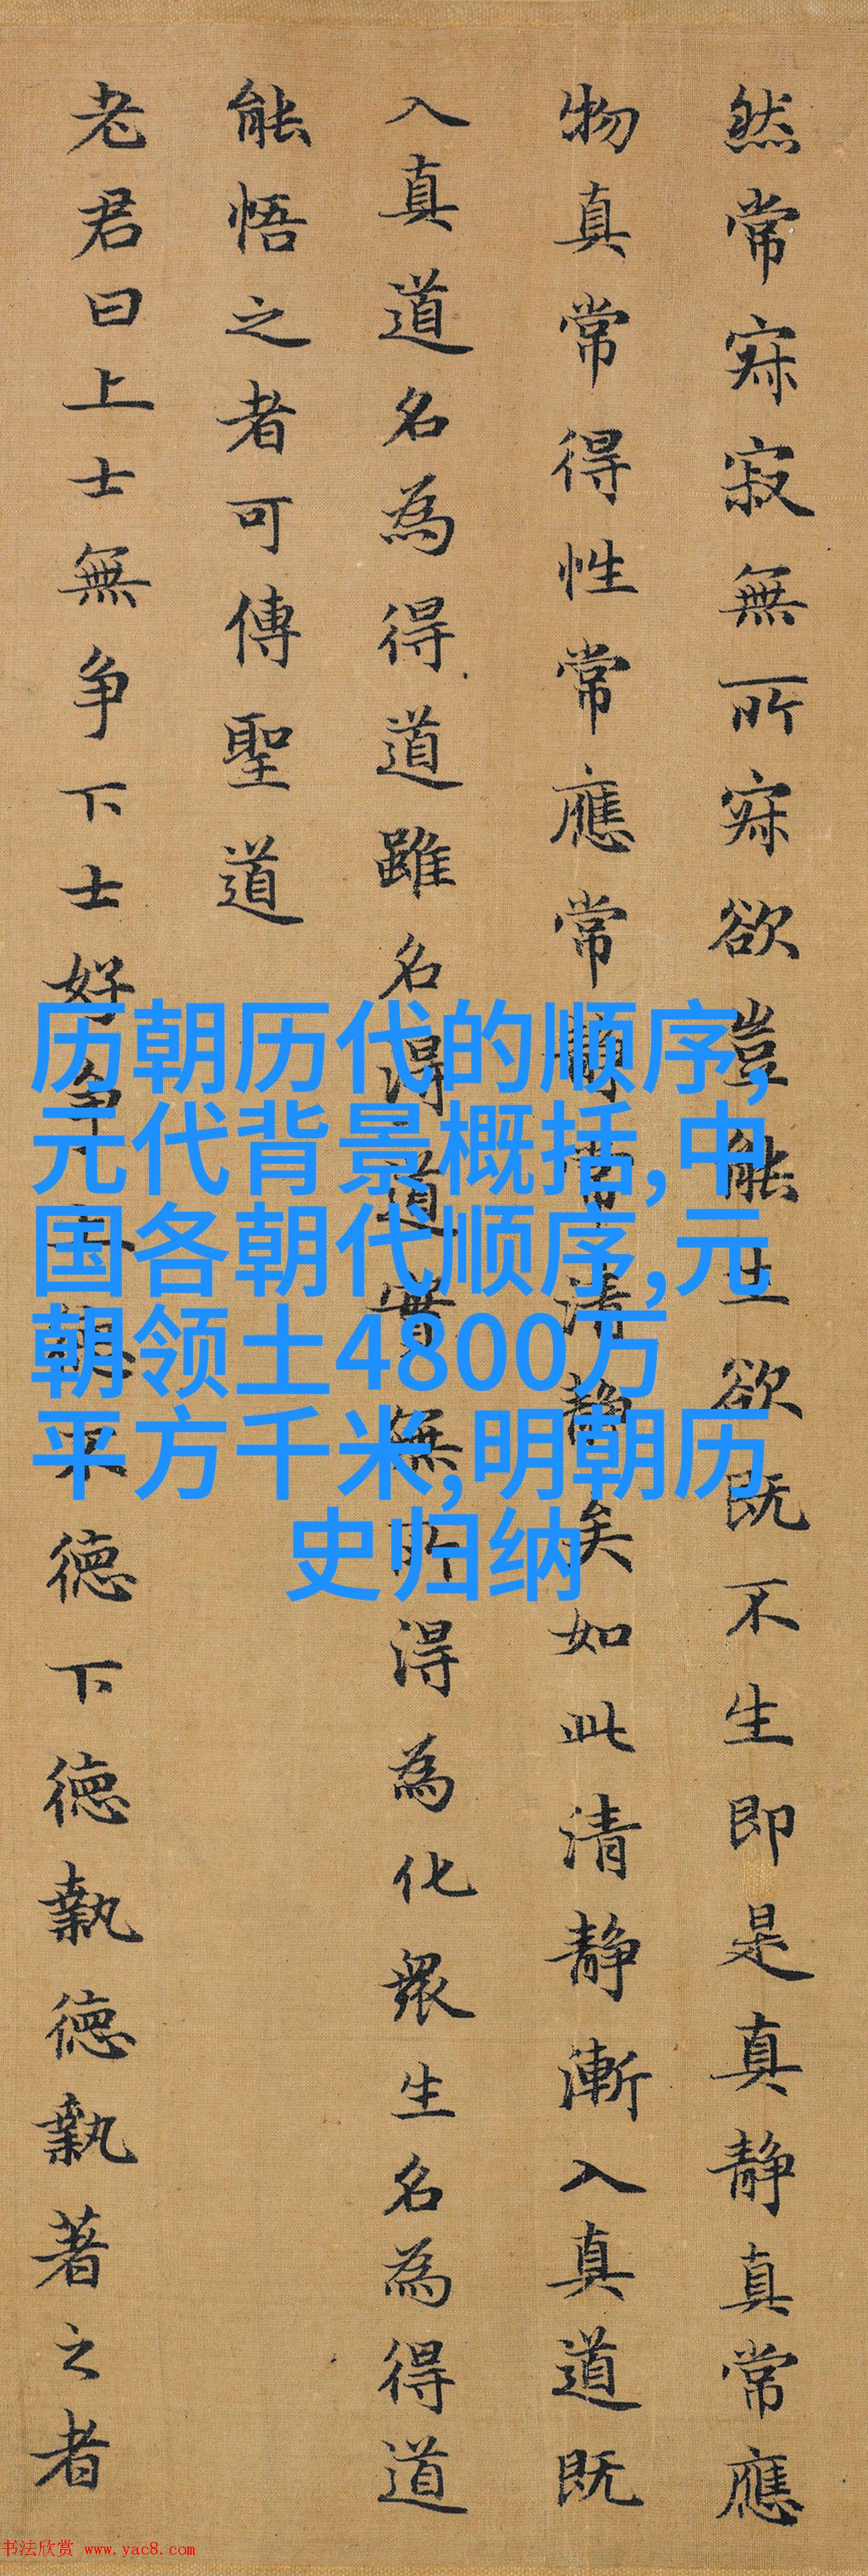 然常寂寂無所寂欲豈能生欲既不生即是真静真常應
物真常得性常應常静常清静矣如此清静漸入真道既
入真道名為得道雖名得道實無所得為化眾生名為得道
能悟之者可傳聖道
老君曰上士無争下士好争上德不德下德執德執著之者
历朝历代的顺序,
元代背景概括,中
国各朝代顺序,元
朝领土4800万
平方千米,明朝历
史归纳
书法欣赏 www.yac8.com